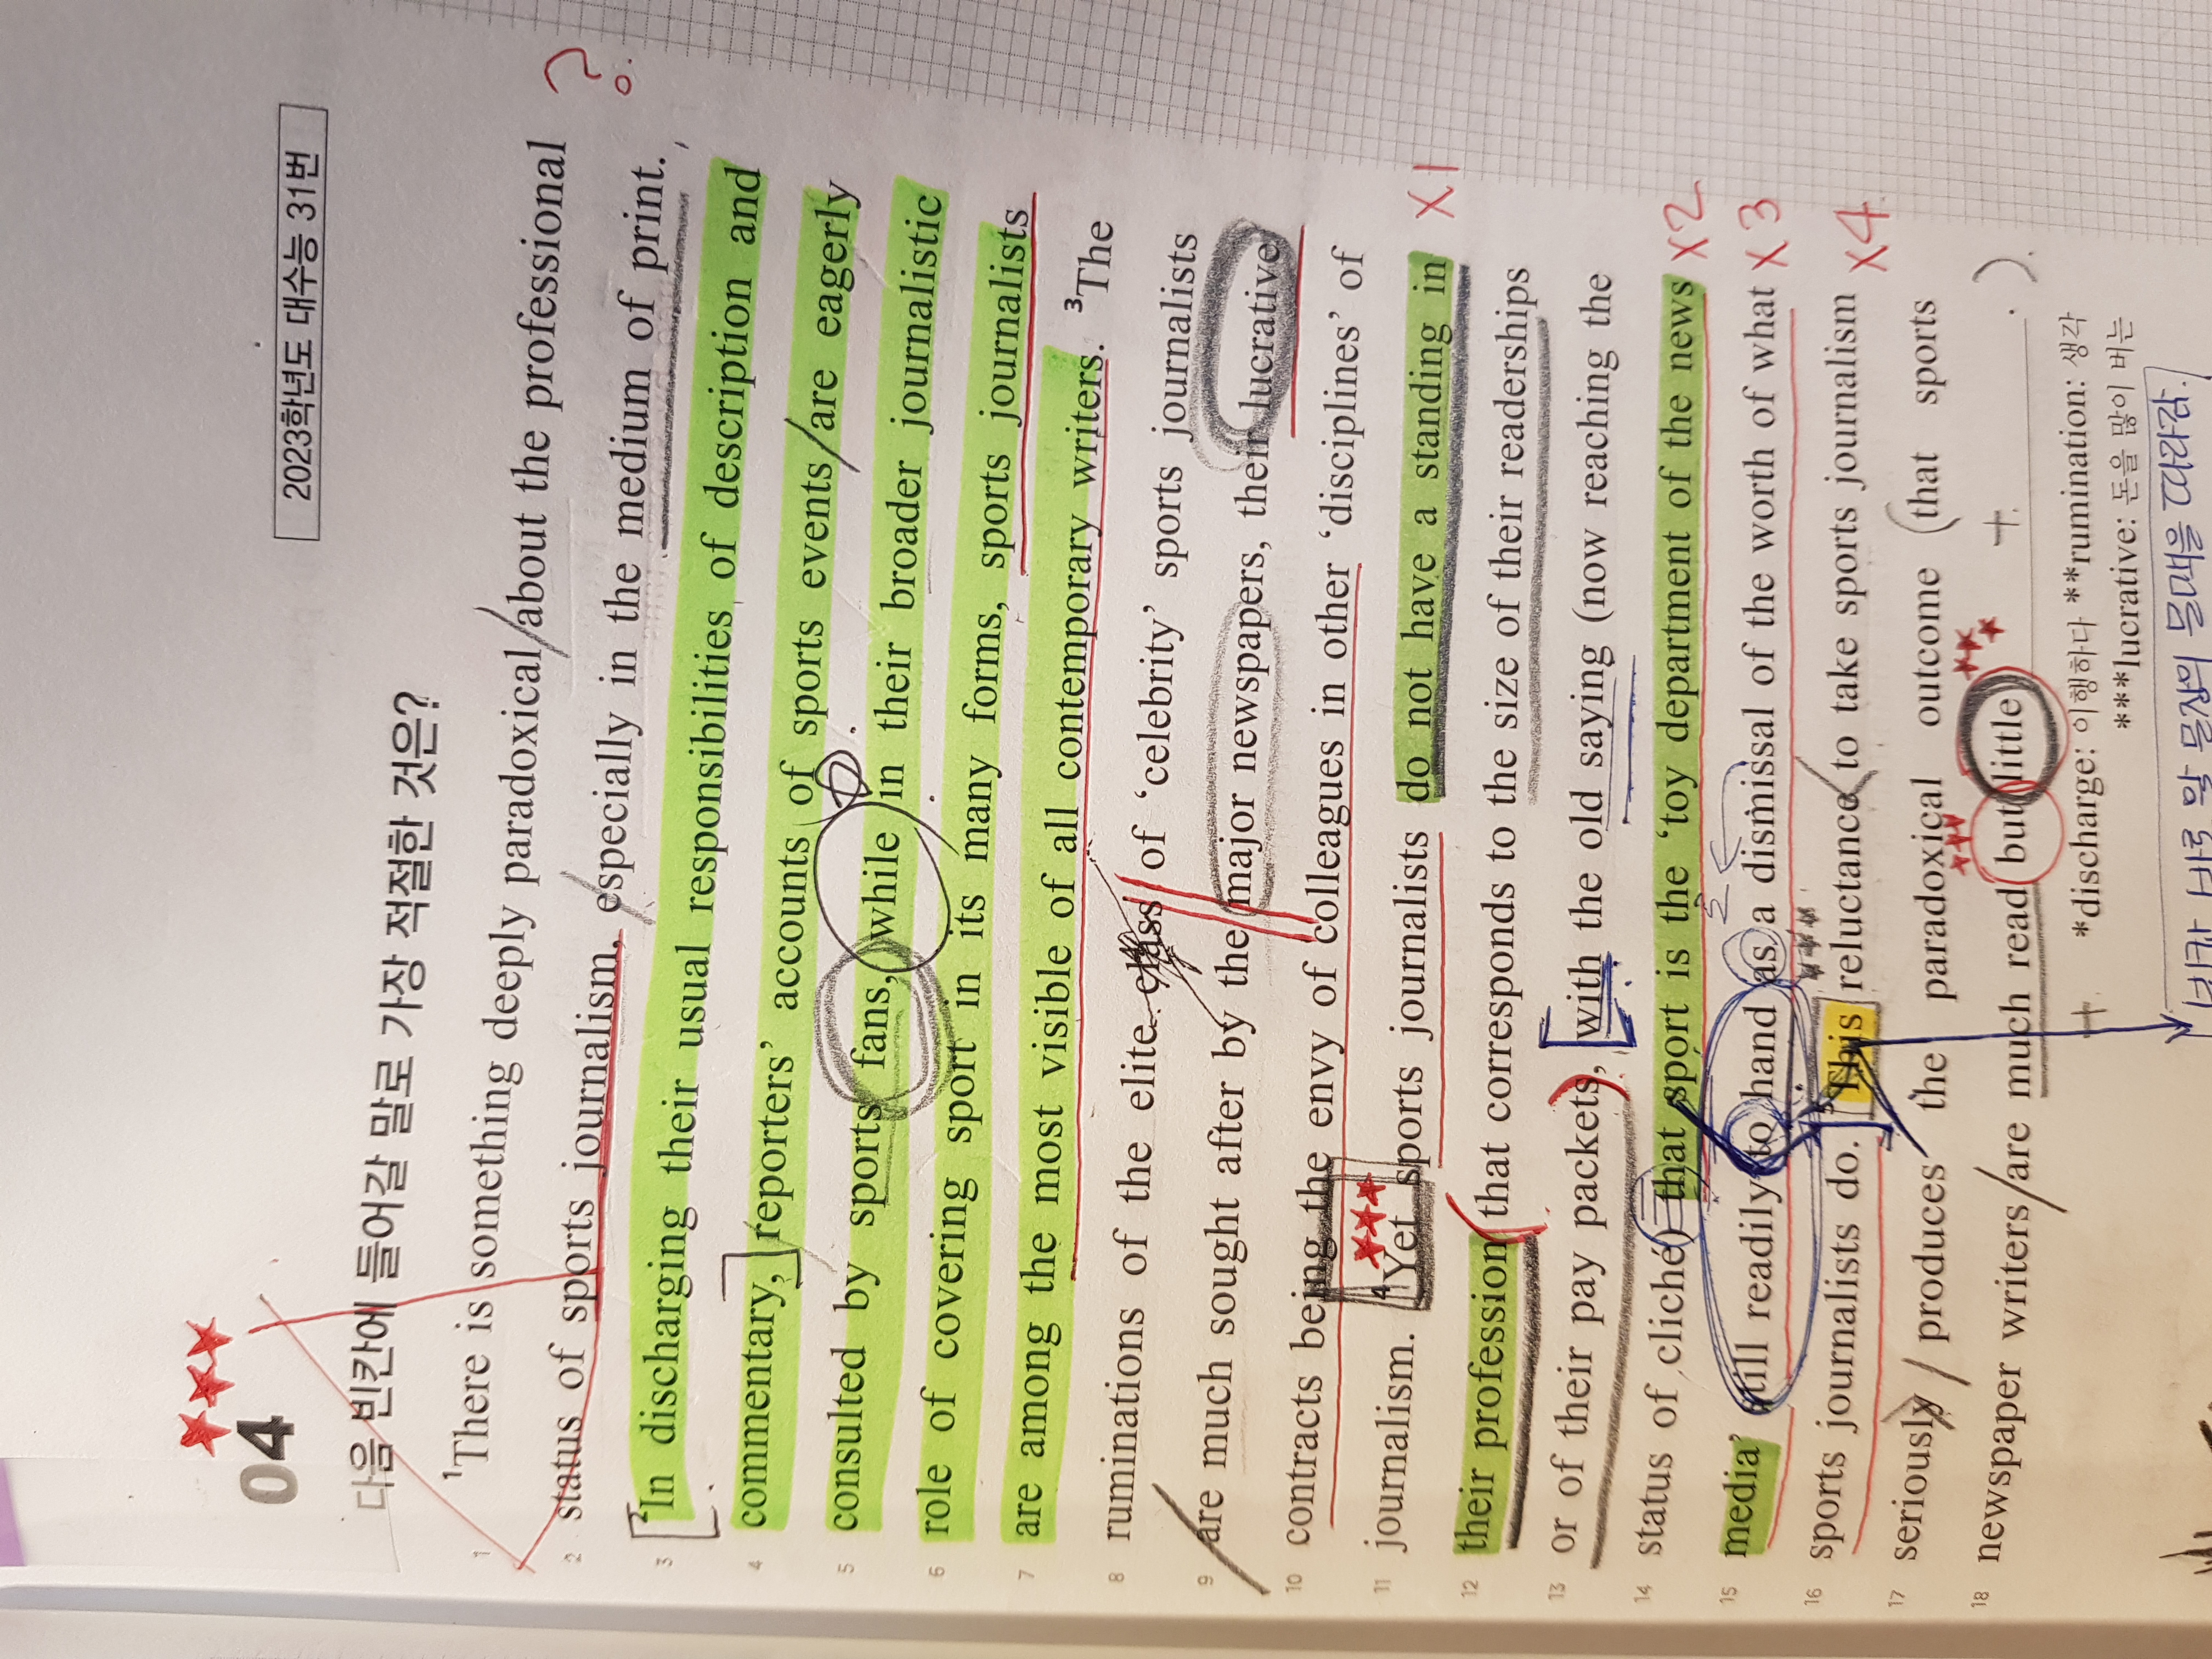 04
2023학년도 대수능 31번
다음 빈칸에 들어갈 말로 가장 적절한 것은?
1 ¹There is something deeply paradoxical about the professional ?
2 status of sports journalism, especially in the medium of print.
3 ²In discharging their usual responsibilities of description and
4 commentary, reporters' accounts of sports events are eagerly
5 consulted by sports fans, while in their broader journalistic
6 role of covering sport in its many forms, sports journalists
7 are among the most visible of all contemporary writers. ³The
8 ruminations of the elite class of 'celebrity' sports journalists
9 are much sought after by the major newspapers, their lucrative
10 contracts being the envy of colleagues in other 'disciplines' of
11 journalism. ⁴Yet sports journalists do not have a standing in X1
12 their profession that corresponds to the size of their readerships
13 or of their pay packets, with the old saying (now reaching the
14 status of cliché) that sport is the 'toy department of the news X2
15 media' still readily to hand as a dismissal of the worth of what X3
16 sports journalists do. ⁵This reluctance to take sports journalism X4
17 seriously produces the paradoxical outcome (that sports
18 newspaper writers are much read but little ________ . )
+ +
*discharge: 이행하다 **rumination: 생각
***lucrative: 돈을 많이 버는
빈칸 바로 앞 문장의 물매을 따라감.